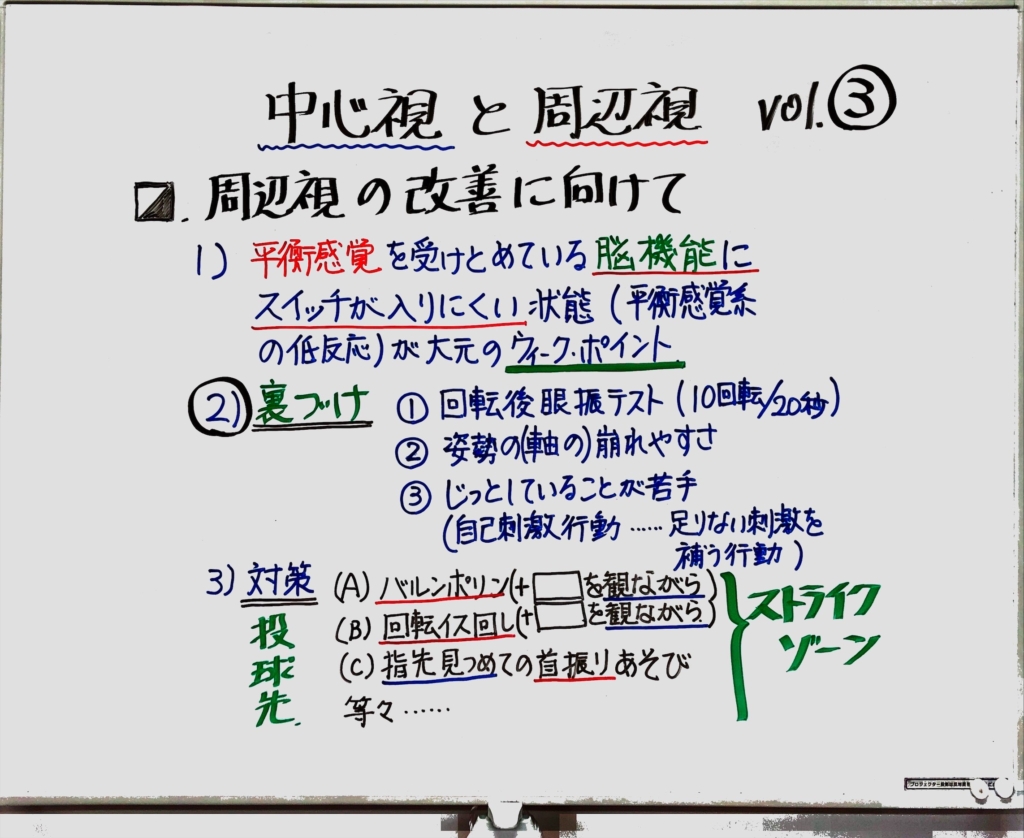 中心視と周辺視 vol.③
◪.周辺視の改善に向けて
1) 平衡感覚を受けとめている脳機能に
スイッチが入りにくい状態(平衡感覚系
の低反応)が大元のウィーク・ポイント
2) 裏づけ ① 回転後眼振テスト(10回転/20秒)
② 姿勢の(軸の)崩れやすさ
③ じっとしていることが苦手
(自己刺激行動……足りない刺激を
補う行動)
3) 対策 (A) バルンポリン(+□を観ながら)
(B) 回転イス回し(+□を観ながら)
(C) 指先見つめての首振りあそび
等々……
投球先.
ストライク
ゾーン